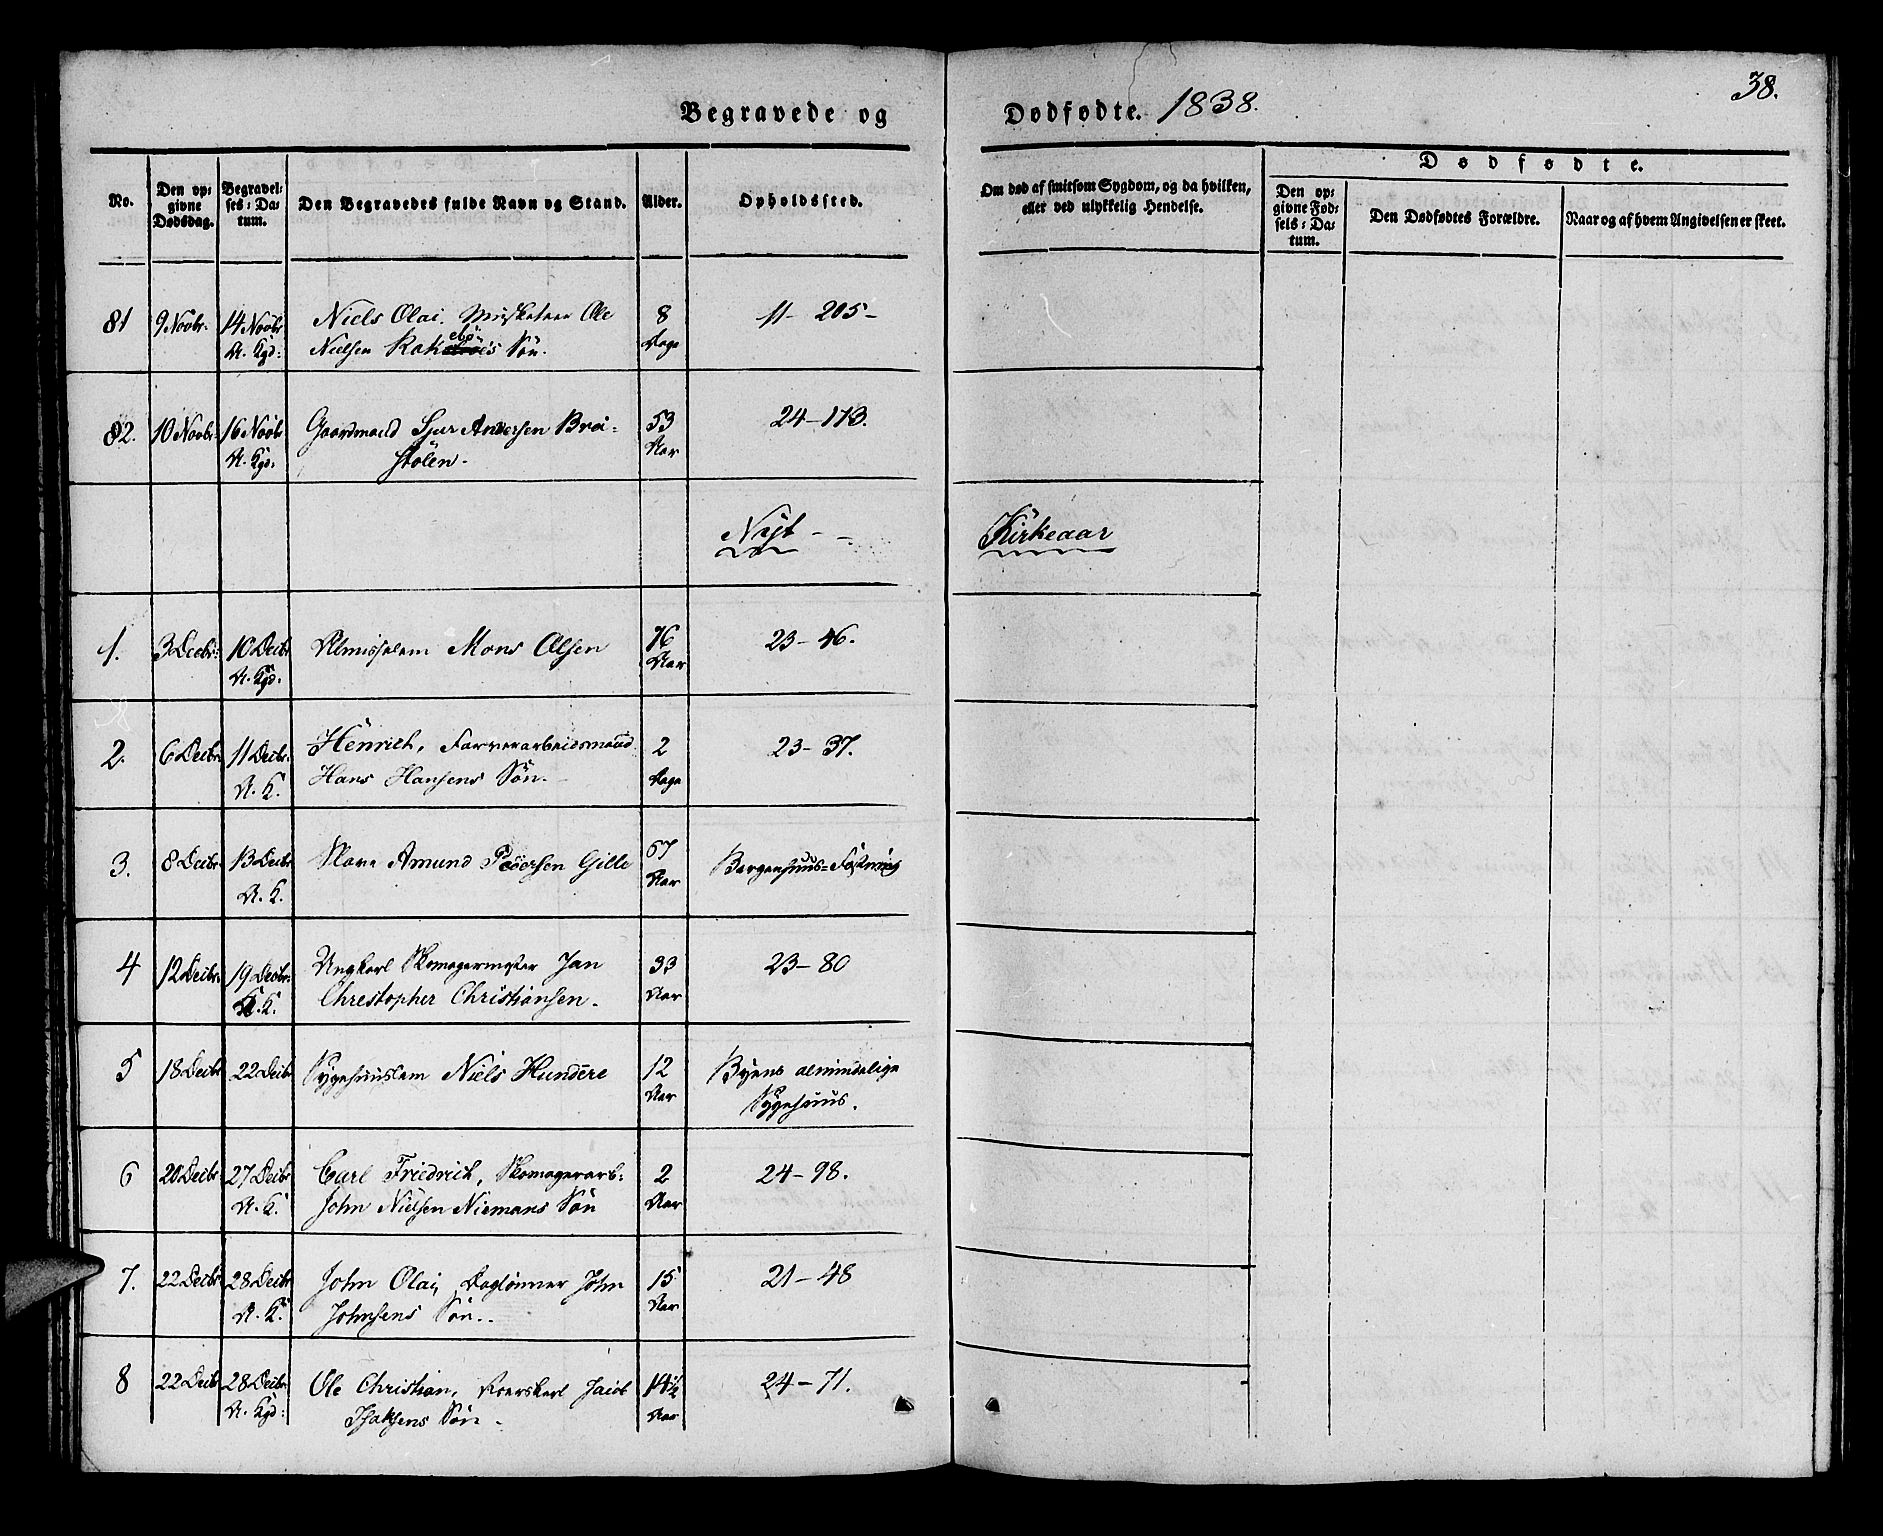 38.
Begravede og Dødfødte. 1838.
No.
Den opgivne Dødsdag.
Begravelses-Datum.
Den Begravedes fulde Navn og Stand.
Alder.
Opholdssted.
Om død af smitsom Sygdom, og da hvilken, eller ved ulykkelig Hendelse.
Dødfødte.
Den opgivne Fødsels-Datum.
Den Dødfødtes Forældre.
Naar og af hvem Angivelsen er skeet.
81 9 Novbr. 14 Novbr Niels Olai. Musketeer Ole 8 11-205-
A. Kgd: Nielsen Rakebøes Søn. Dage
82. 10 Novbr. 16 Novbr Gaardmand Sjur Andersen Brei- 53 24-113.
A. Kgd: stölen. Aar
Nyt - - Kirkeaar
1. 3 Decbr: 10 Decbr Almisselem Mons Olsen 76 23-46.
A. Kgd: Aar
2. 6 Decbr. 11 Decbr. Henrich, Farverarbeidsmand 2 23-37.
A. K. Hans Hansens Søn. Dage
3. 8 Decbr. 13 Decbr Slave Amund Pedersen Gille 67 Bergenhuus-Fæstning
A. K. Aar
4 12 Decbr. 19 Decbr. Ungkarl Skomagermester Jan 33 23-80
A. K. Chrestopher Christiansen. Aar
5 18 Decbr 22 Decbr Sygehuuslem Niels Hundere 12 Byens almindelige
Aar Sygehuus.
6 20 Decbr. 27 Decbr Carl Friedrich, Skomagerarb- 2 24-98.
A. K. John Nielsen Niemans Søn Aar
7. 22 Decbr 28 Decbr John Olai, Daglønner John 15 21-48
A. K. Johnsens Søn. Aar
8 22 Decb 28 Decbr. Ole Christian, Roerskarl Jacob 14½ 24-71.
A. Kgd: Isaksens Søn. Aar